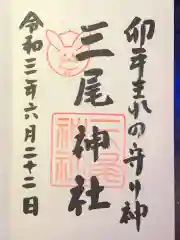 卯年生れの守り神
三尾神社
令和三年六月二十二日
三尾神社